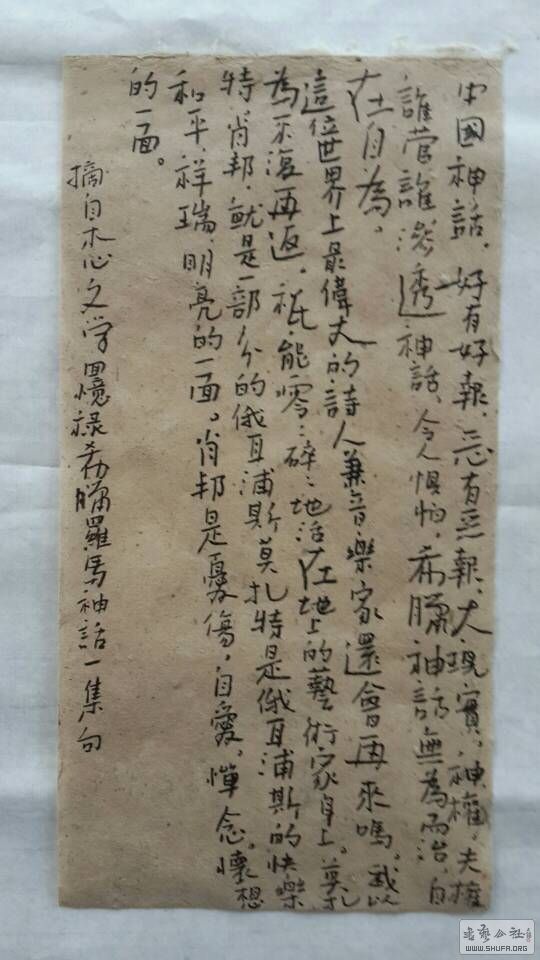 中國神話，好有好報，惡有惡報，太現實。神權，夫權
誰管誰滲透神話，令人惧怕，希臘神話無為而治，自
在自為。
這位世界上最偉大的詩人兼音樂家還會再來嗎。我以
為不復再返。祇能零零碎碎地活在地上的藝術家身上。莫扎
特，肖邦，就是一部分的俄耳浦斯莫扎特是俄耳浦斯的快樂
和平，祥瑞，明亮的一面。肖邦是憂傷，自愛，惮念。懷想
的一面。
摘自木心文学回憶录希臘羅馬神話一集句
书艺公社
WWW.SHUFA.ORG